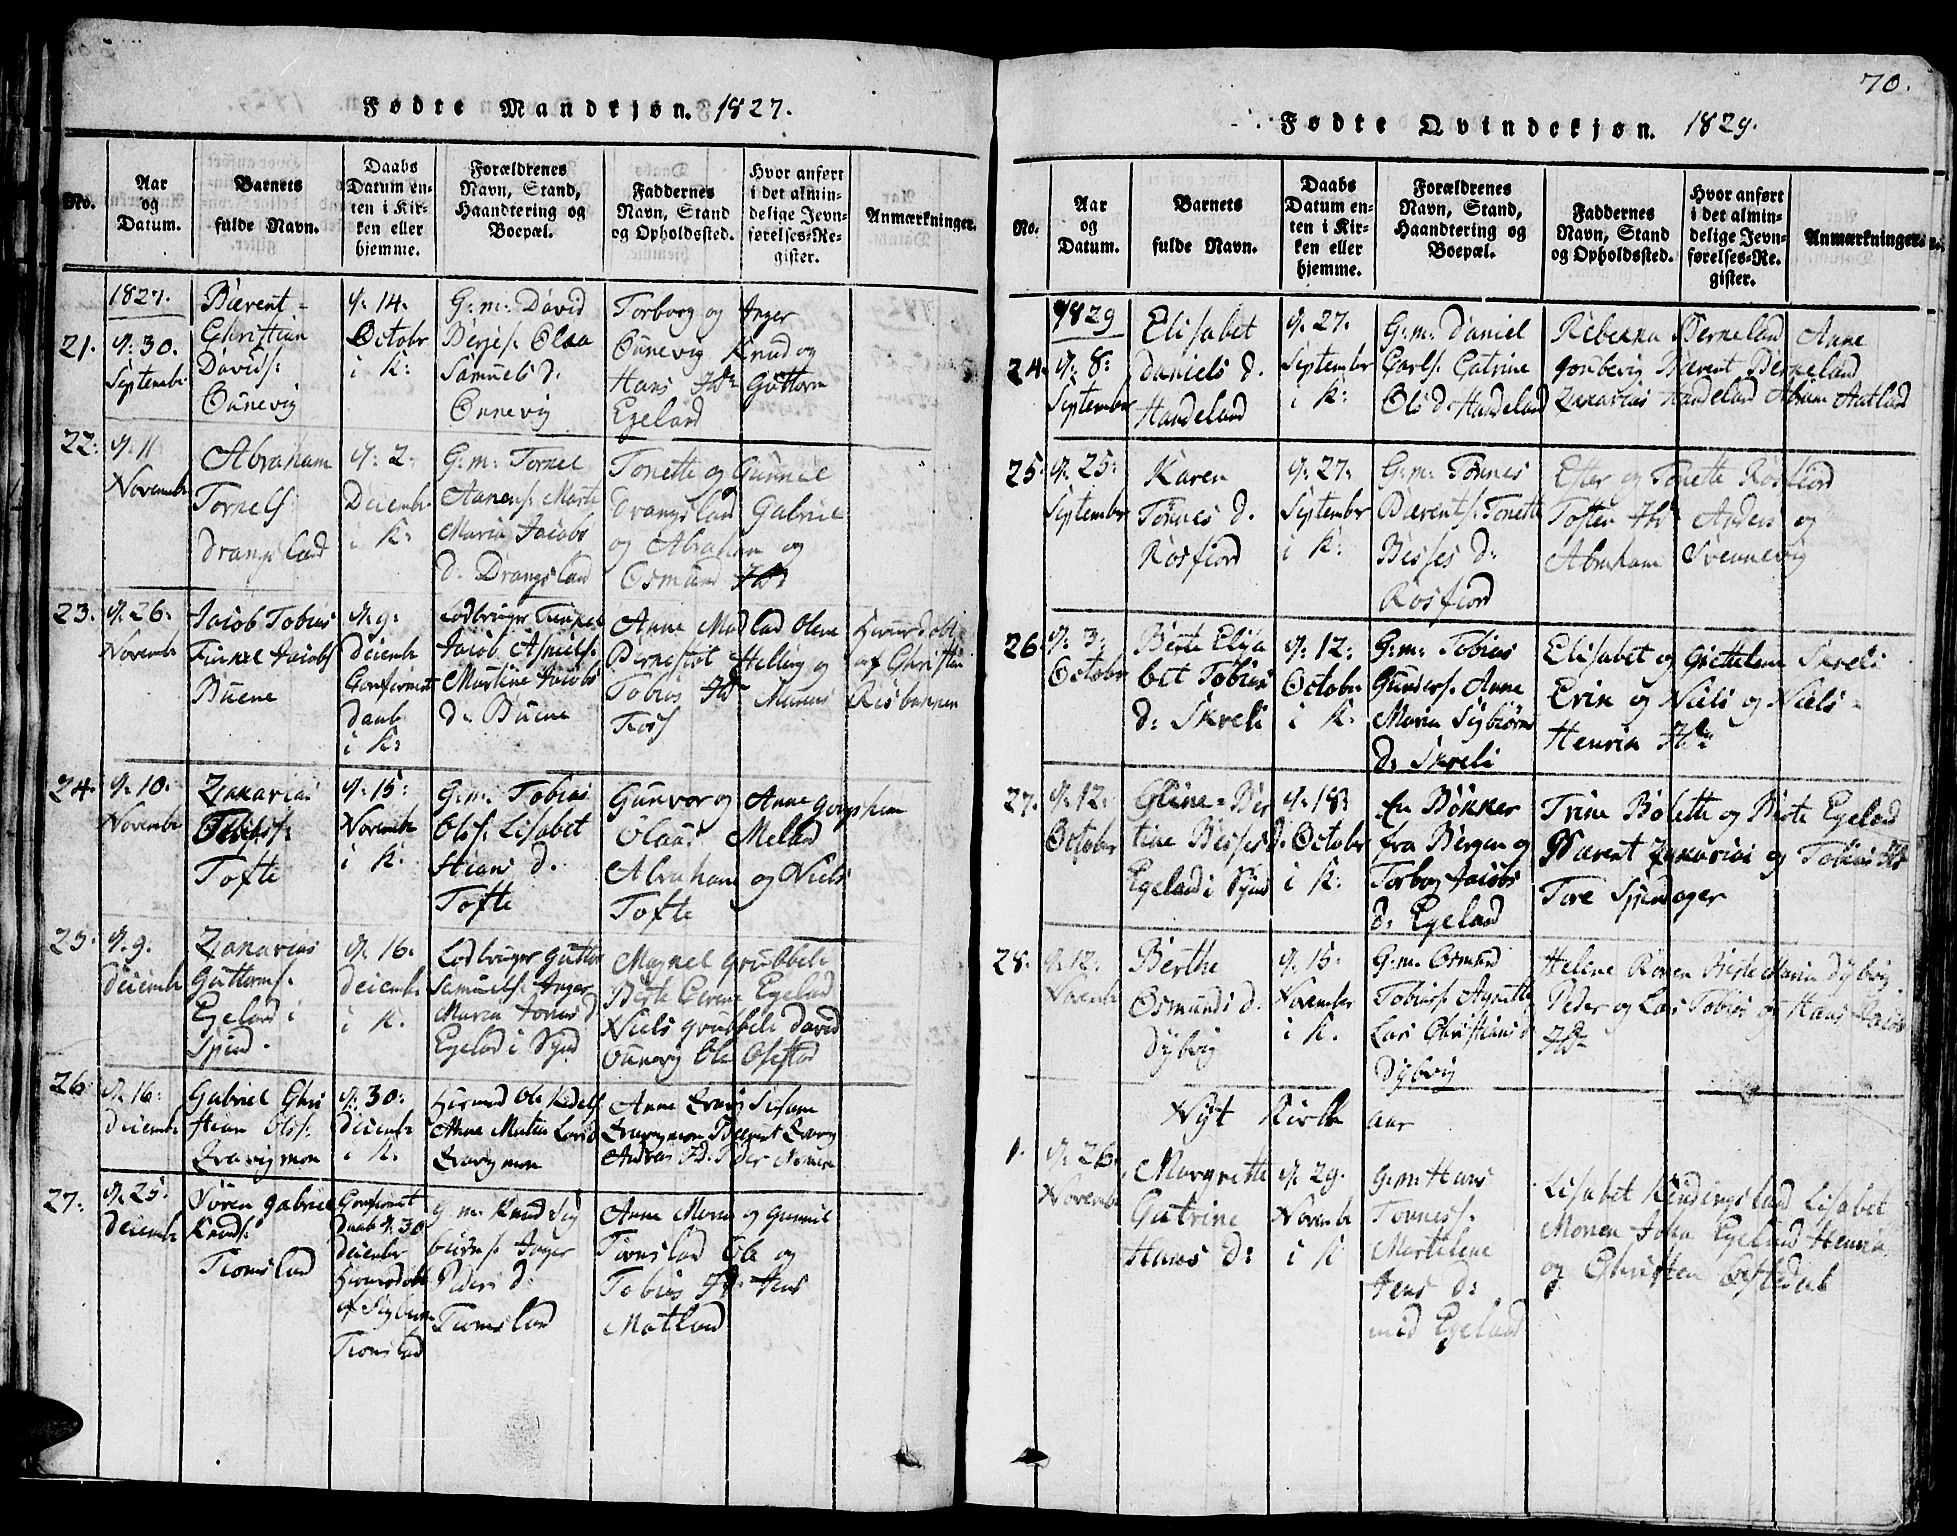 Fødte Mandkjøn. 1827.
No.
Aar
og
Datum.
Barnets
fulde Navn.
Daabs
Datum en-
ten i Kir-
ken eller
hjemme.
Forældrenes
Navn, Stand,
Haandtering og
Boepæl.
Faddernes
Navn, Stand
og Opholdssted.
Hvor anført
i det almin-
delige Jevn-
førelses-Re-
gister.
Anmærkninger.
21.
1827.
d. 30.
September
Bærent-
Christian
Davids:
Ounevig
d: 14.
Octobr
i K:
G: m: David
Berjes: Olaa
Samuels d:
Onnevig
Torborg og Inger
Ounevig Knud og
Hans Ibd Guttorm
Egeland
22.
d. 11
November
Abraham
Tornels
Drangsland
d: 2.
Decembr
i K:
G: m: Tornel
Aanens: Marte
Maria Jacobs
d. Drangsland
Tonette og Gunnil
Drangsland Gabriel
og Abraham og
Osmund Ibd
23.
d. 26.
November
Jacob Tobias
Finkel Jacobs
Buene
d. 9.
Decembr
Confirmert
daab
i K:
Lodbruger Finkel
Jacob Asniels:
Martine Jacobs
d. Buene
Anne Mad lad Olene
Berneskot Helling og
Tobias Ibd Marcus
Foss
Hiemdøbt
af Christen
Risbakken
24.
d. 10.
November
Zakarias
Tobias:
Tofte
d: 15:
November
i K.
G: m: Tobias
Ols: Lisabet
Hans d.
Tofte
Gunvor og Anne
Olaus Meland
Abraham og Niels
Tofte
25.
d. 9.
Decembr
Zakarias
Guttorms:
Egeland i
Spind.
d. 16.
Decembr
i K.
Lodbruger Guttor
Samuels: Inger
Maria Jonas d
Egelad i Spind
Magnel Grubbeli
Berte Serene Egelad
Niels Grubbeli David
Ounevig Ole Olestad
26
d. 16.
Decembr
Gabriel Chri
stian Ols:
d. 30.
Decembr
i K.
Ole
Anne
Anne
Andras Ibd. Peder
27.
d. 25.
Decembr
Søren Gabriel
Knuds:
Tiomslad
Confirmert
Daab d. 30
Decembr
Hiemdøbt
af Sigbiørn
Tiomslad
G. m. Knud Sig
biørns: Inger
Peders d.
Tiomslad
Anne Maria og Gunnil
Tiomslad Ole og
Tobias Ibd. Jens
Motland
70.
Fødte Qvindekjøn. 1829.
No.
Aar
og
Datum.
Barnets
fulde Navn.
Daabs
Datum en-
ten i Kir-
ken eller
hjemme.
Forældrenes
Navn, Stand,
Haandtering og
Boepæl.
Faddernes
Navn, Stand
og Opholdssted.
Hvor anført
i det almin-
delige Jevn-
førelses-Re-
gister.
Anmærkninger.
24.
1829
d: 8:
September
Elisabet
Daniels d.
Handeland
d. 27.
September
i K:
G: m: Daniel
Carls: Catrine
Ols d. Handeland
Rebekka Berneland Anne
Bærent Berneland
Zakarias Handeland
25.
d: 25:
September
Karen
Tønnes d.
Rosfiord
d: 27:
September
i K:
G: m: Tønnes
Bærents: Tonette
Besses d:
Rosfiord
Ester og Tonette Rosfiord
Tosten Ibd Anders og
Abraham Svennevig
26.
d: 3:
October
Berte Elisa
bet Tobias
d: Skreli
d: 12:
October
i K.
G: m: Tobias
Gunders: Anne
Maria Sigbiørns
d: Skreli
Elisabet og Skreli
Erik og Niels og Niels-
Henrik Ibd:
27.
d. 12:
October
Eline-Ber
tine Besses d.
Egeland i Spind
d: 18:
October
i K:
en Bøkker
fra Bergen og
Torborg Jacobs
d. Egeland
Trine Bolette og Berte Egeland
Bærent Zakarias og Tobias Ibd
Tore Spindager
28.
d. 12.
November
Berthe
Osmunds d.
Dybvig
d: 15:
November
i K.
G: m. Osmund
Tobias:
Lars Christians d
Dybvig
Helene Berte Maria Dybvig.
Peder og Lars Tobias og Hans Jacob
Ibd
Nyt Kirke aar
1.
d. 26.
November
Margrette
Catrine
Hans d:
d. 29.
November
i K
G: m: Hans
Tønnes:
Martilene
Jens d:
med Egeland
Lisabet Kiendingsland Lisabet
Egeland Henrik
og Christen